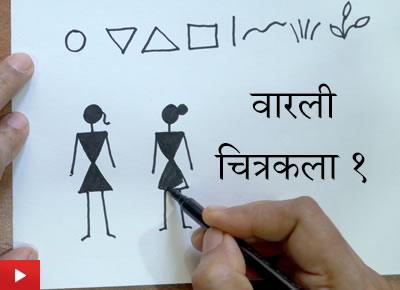 वारली
चित्रकला १